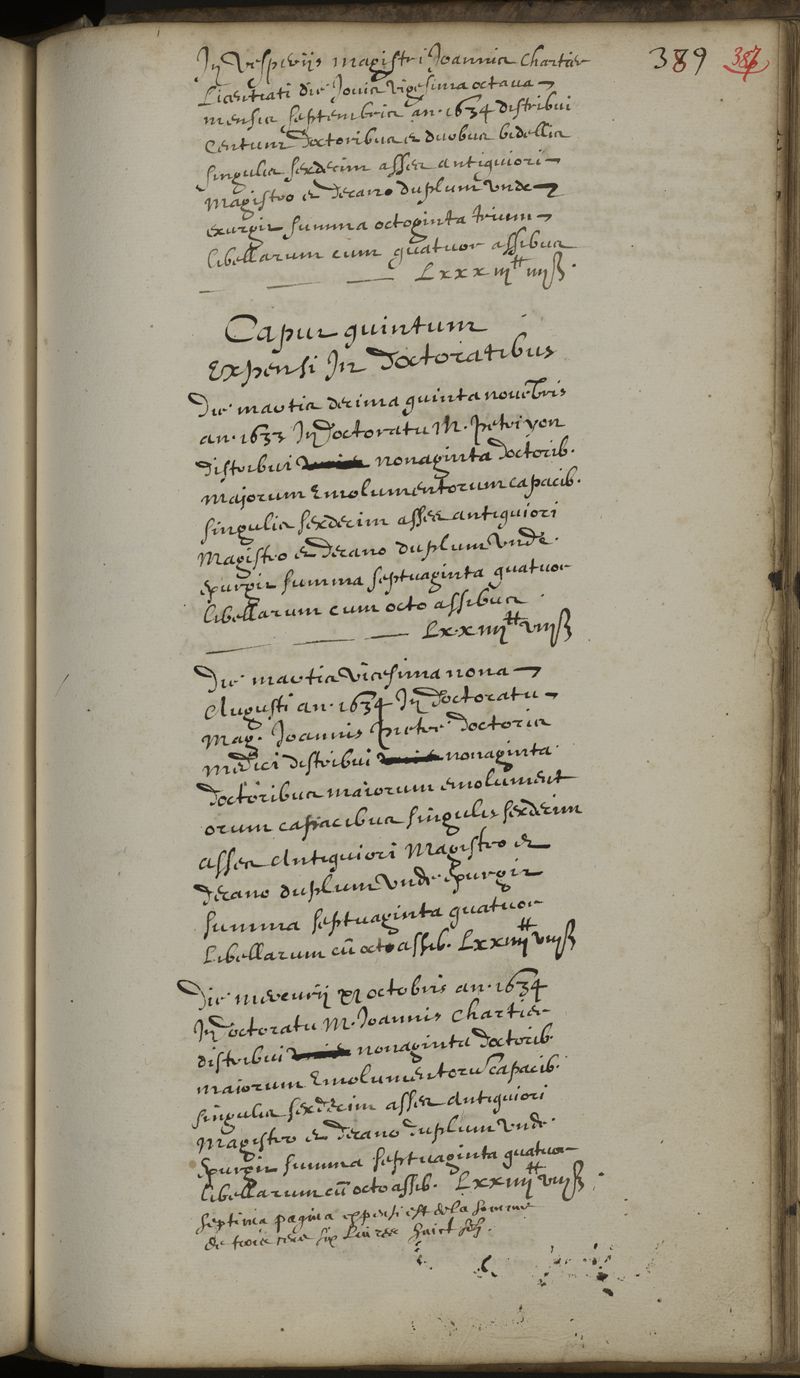 389 387
In Vesperiis magistri Joannis Chartier
Licentiati die Jovis vigesima octava
mensis septembris an. 1634 distribui
Centum doctoribus et duobus bidellis
singulis sexdecim asses antiquiori
Magistro et decano duplum unde
exurgit summa octoginta trium
libellarum cum quatuor assibus
Lxxxiii ₶ iiii ß.
Caput quintum
Expensi In Doctoratibus
Die martis decima quinta novebris
an. 1633 In Doctoratu M. Petri yon
distribui nonaginta doctorib.
majorum Emolumentorum capacib.
singulis sexdecim asses antiquiori
Magistro et decano duplum unde
exurgit summa septuaginta quatuor
libellarum cum octo assibus
Lxxiiii ₶ viii ß
Die martis vicesima nona
Augusti an. 1634 In doctoratu
Mag. Joannis Pietre doctoris
medici distribui nonaginta
doctoribus maiorum emolument
orum capacibus singulis sexdecim
asses Antiquiori Magistro et
decano duplum unde exurgit
summa septuaginta quatuor
Libellarum cū octo assib. Lxxiiii ₶ viii ß
Die mercurii xi octobris an. 1634
In doctoratu M. Joannis Chartier
distribui nonaginta doctorib.
maiorum Emolumentorū capacib.
singulis sexdecim asses Antiquiori
Magistro et decano duplum unde
exurgit summa septuaginta quatuor
libellarum cū octo assib. Lxxiiii ₶ viii ß.
septima pagina expensi est de la somme
de trois cens six Livres huict sols.